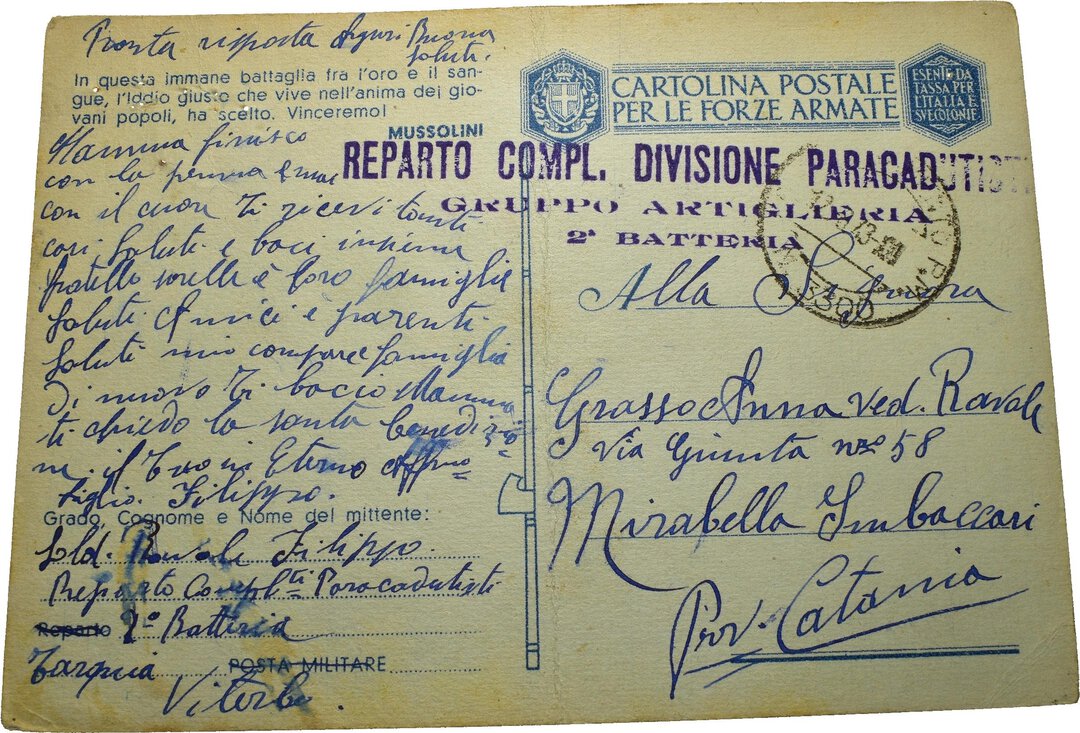 Pronta risposta Auguri Buona
Salute.
In questa immane battaglia fra l'oro e il san-
gue, l'Iddio giusto che vive nell'anima dei gio-
vani popoli, ha scelto. Vinceremo!
MUSSOLINI
Mamma finisco
con la penna e mai
con il cuore Ti ricevi tanti
cari saluti e baci insieme
fratello sorelle e loro famiglie
saluti Amici e parenti
saluti mio compare famiglia
Di nuovo Ti bacio Mamma
ti chiedo la santa benedizio
ne. il Tuo in Eterno Affmo
Figlio. Filippo.
Grado, Cognome e Nome del mittente:
Sold. Ravale Filippo.
Reparto Compl.ti Paracadutisti
Reparto 2ª Batteria
Tarquia POSTA MILITARE
Viterbo.
CARTOLINA POSTALE
PER LE FORZE ARMATE
ESENTE DA
TASSA PER
L'ITALIA E
SVE COLONIE
REPARTO COMPL. DIVISIONE PARACADUTISTI
GRUPPO ARTIGLIERIA
2ª BATTERIA
P.M.
3300
Alla Signora
Grasso Anna ved. Ravale
Via Giunta nro 58
Mirabella Imbaccari
Prov. Catania